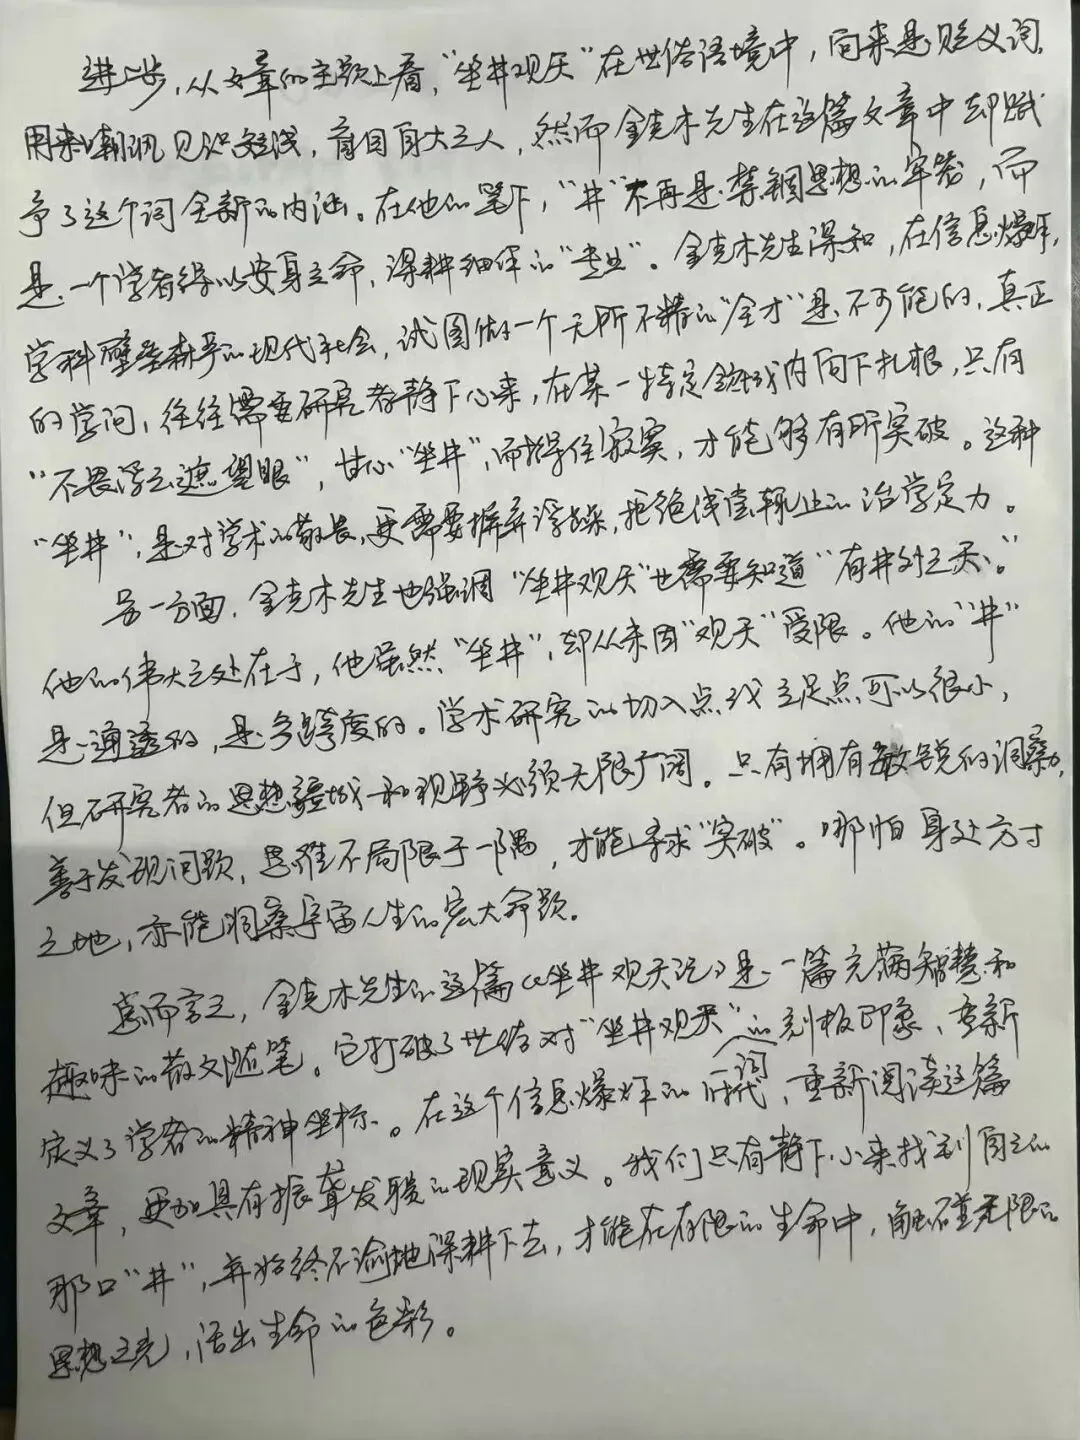 进一步，从文章的主题上看，“坐井观天”在世俗语境中，向来是贬义词，
用来嘲讽见识短浅，盲目自大之人，然而金克木先生在这篇文章中却赋
予了这个词全新的内涵。在他的笔下，“井”不再是禁锢思想的牢笼，而
是一个学者得以安身立命，深耕细作的“专业”。金克木先生深知，在信息爆炸，
学科壁垒森严的现代社会，试图做一个无所不精的“全才”是不可能的，真正
的学问，往往需要研究者静下心来，在某一特定领域内向下扎根，只有
“不畏浮云遮望眼”，甘心“坐井”，而耐住寂寞，才能够有所突破。这种
“坐井”，是对学术的敬畏，更需要摒弃浮躁，拒绝浅尝辄止的治学定力。
另一方面，金克木先生也强调“坐井观天”也需要知道“有井外之天”。
他的伟大之处在于，他虽然“坐井”，却从未因“观天”受限。他的“井”
是通透的，是多跨度的。学术研究的切入点或立足点可以很小，
但研究者的思想疆域和视野必须无限广阔。只有拥有敏锐的洞察力，
善于发现问题，思维不局限于一隅，才能寻求“突破”。哪怕身处方寸
之地，亦能洞察宇宙人生的宏大命题。
总而言之，金克木先生的这篇《坐井观天记》是一篇充满智慧和
趣味的散文随笔。它打破了世俗对“坐井观天”一词的刻板印象，重新
定义了学者的精神坐标。在这个信息爆炸的时代，重新阅读这篇
文章，更加具有振聋发聩的现实意义。我们只有静下心来找到自己的
那口“井”，并始终不渝地深耕下去，才能在有限的生命中，触碰无限的
思想之光，活出生命的色彩。